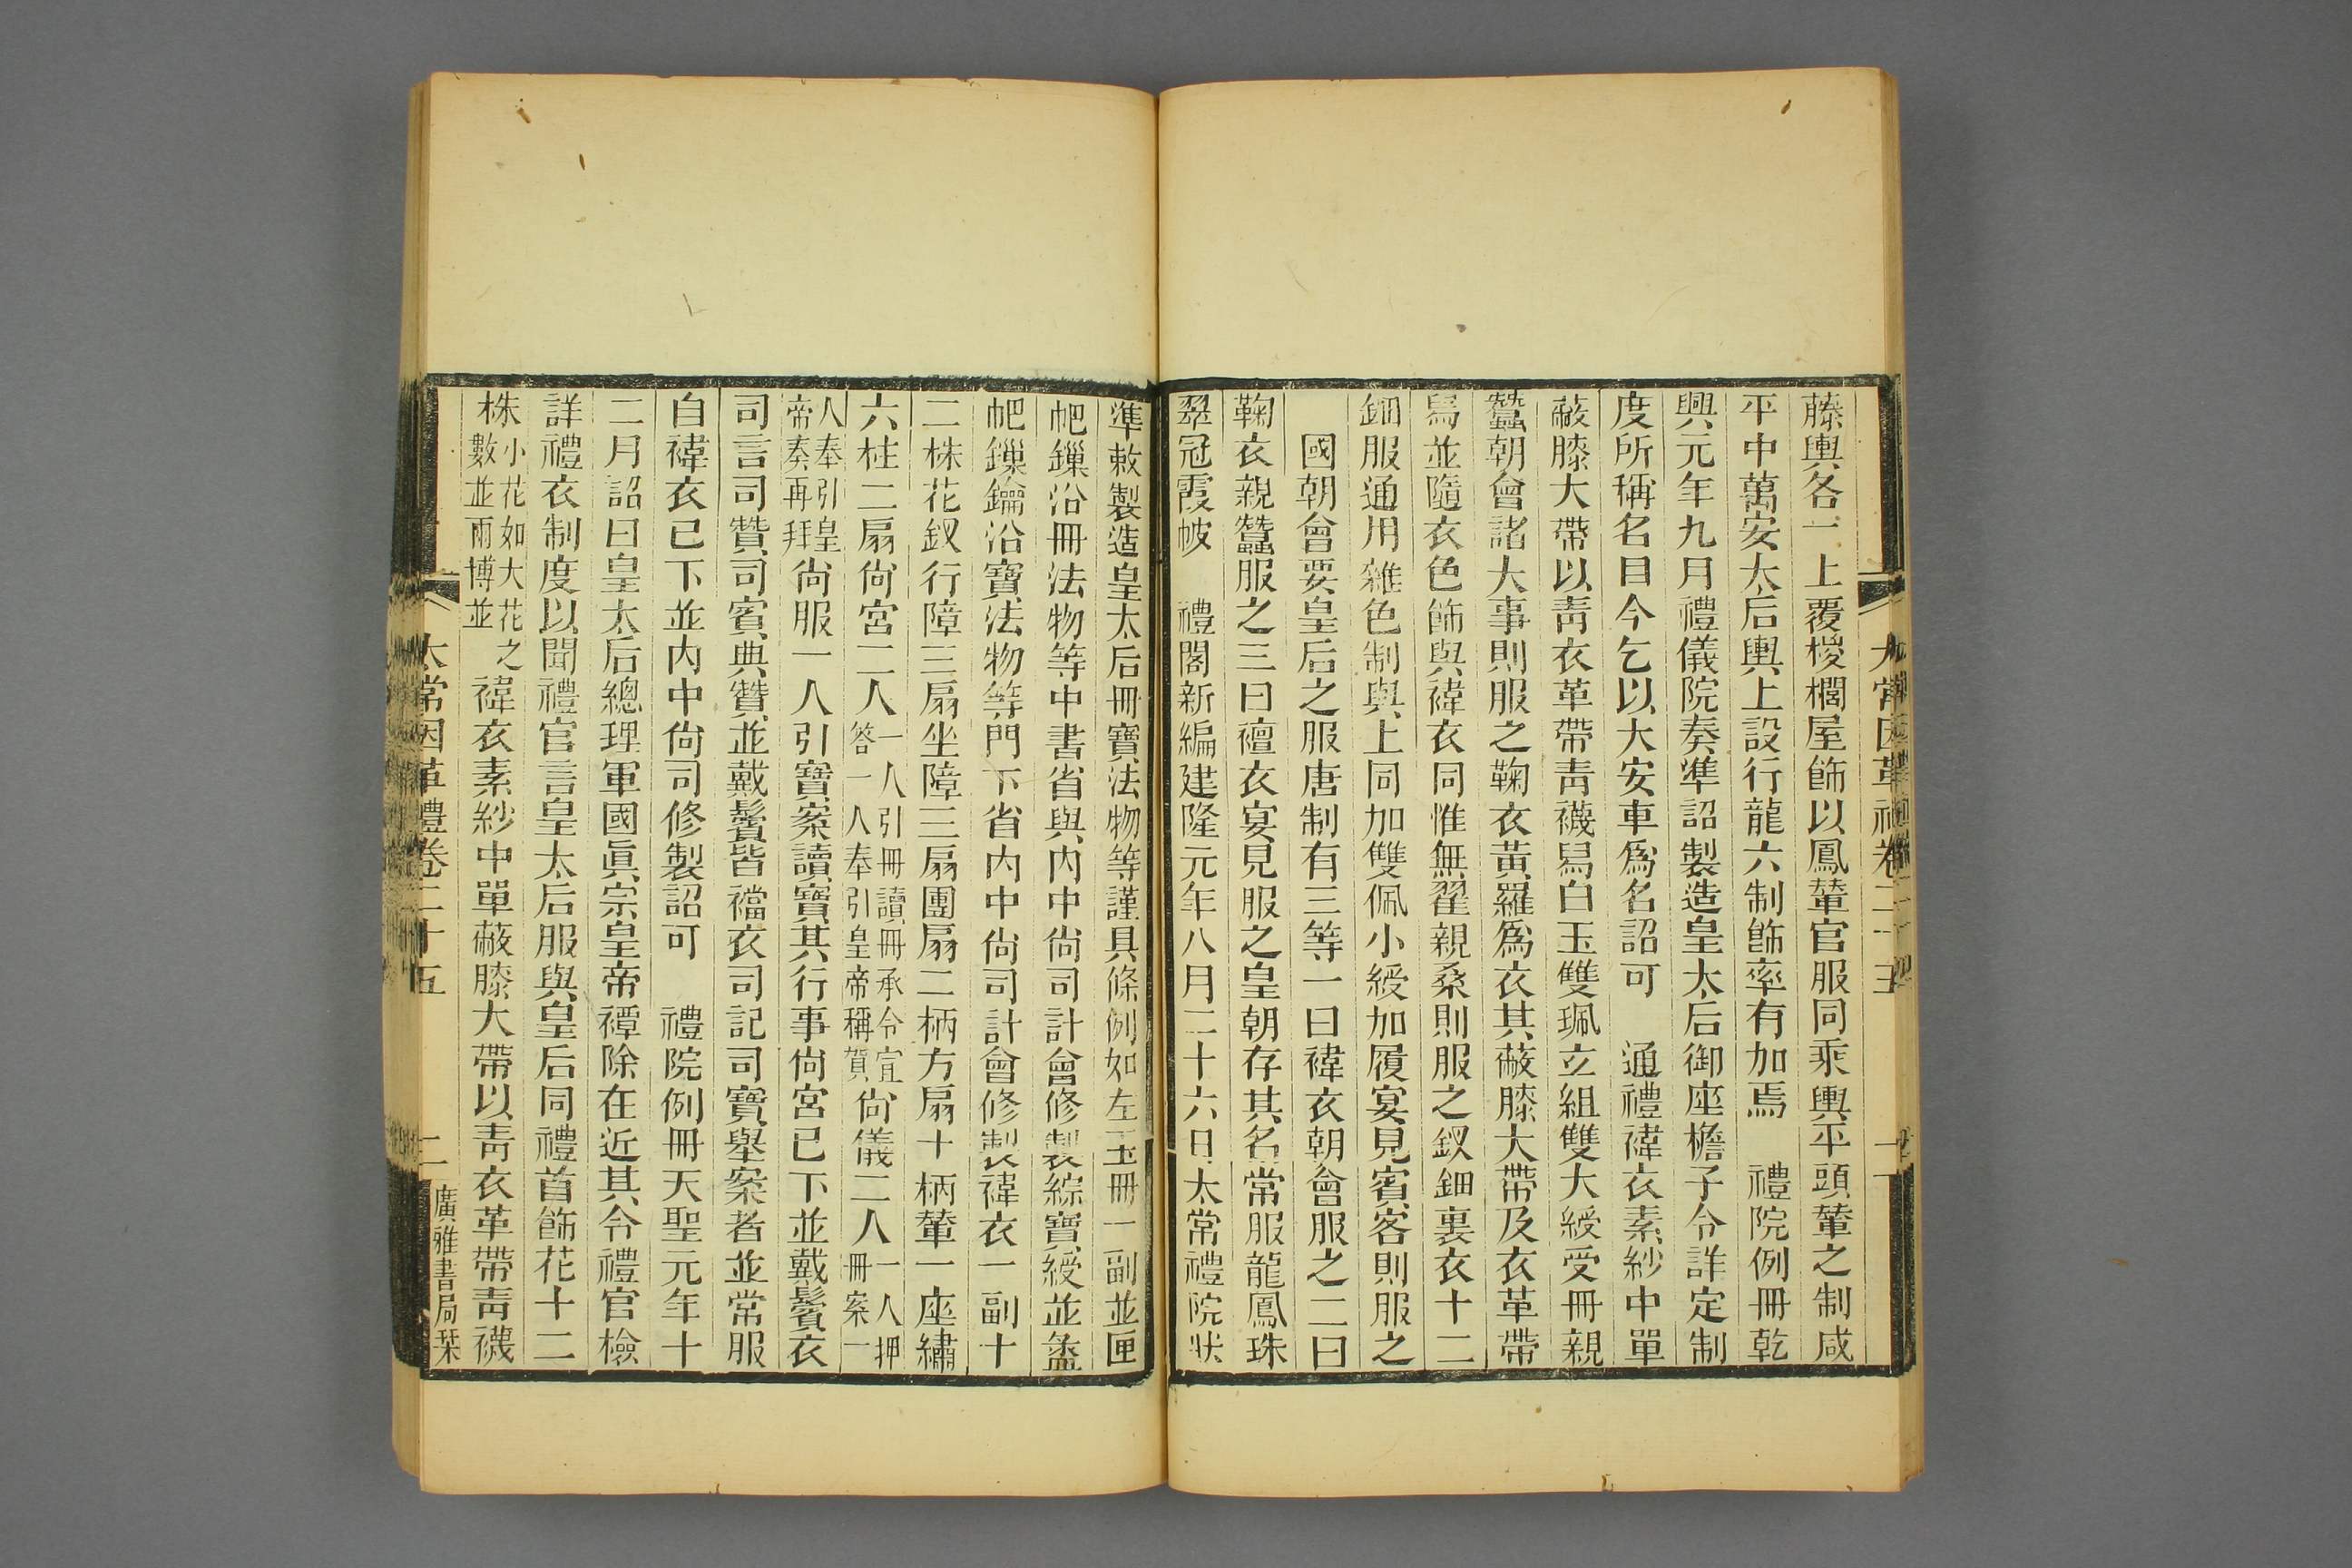 太常因革禮卷二十五
一
藤輿各一上覆椶櫚屋飾以鳳輦官服同乘輿平頭輦之制咸
平中萬安太后輿上設行龍六制飾率有加焉　禮院例冊乾
興元年九月禮儀院奏準詔製造皇太后御座檐子令詳定制
度所稱名目今乞以大安車爲名詔可　通禮褘衣素紗中單
蔽膝大帶以靑衣革帶靑襪舄白玉雙珮立組雙大綬受冊親
蠶朝會諸大事則服之鞠衣黃羅爲衣其蔽膝大帶及衣革帶
舄並隨衣色飾與褘衣同惟無翟親桑則服之釵鈿裏衣十二
鈿服通用雜色制與上同加雙佩小綬加履宴見賓客則服之
國朝會要皇后之服唐制有三等一曰褘衣朝會服之二曰
鞠衣親蠶服之三曰襢衣宴見服之皇朝存其名常服龍鳳珠
翠冠霞帔　禮閣新編建隆元年八月二十六日太常禮院狀
準敕製造皇太后冊寶法物等謹具條例如左玉冊一副並匣
帊鏁沿冊法物等中書省與內中尙司計會修製綜寶綬並盝
帊鏁鑰沿寶法物等門下省內中尙司計會修製褘衣一副十
二株花釵行障三扇坐障三扇團扇二柄方扇十柄輦一座繡
六柱二扇尙宮二人一人引冊讀冊承令宣答一人奉引皇帝稱賀尙儀二人一人押冊案一
人奉引皇帝奏再拜尙服一人引寶案讀寶其行事尙宮已下並戴鬢衣
司言司贊司賓典贊並戴鬢皆襠衣司記司寶舉案者並常服
自褘衣已下並內中尙司修製詔可　禮院例冊天聖元年十
二月詔曰皇太后總理軍國眞宗皇帝禫除在近其令禮官檢
詳禮衣制度以聞禮官言皇太后服與皇后同禮首飾花十二
株小花如大花之數並兩博並褘衣素紗中單蔽膝大帶以靑衣革帶靑襪
太常因革禮卷二十五
二
廣雅書局栞